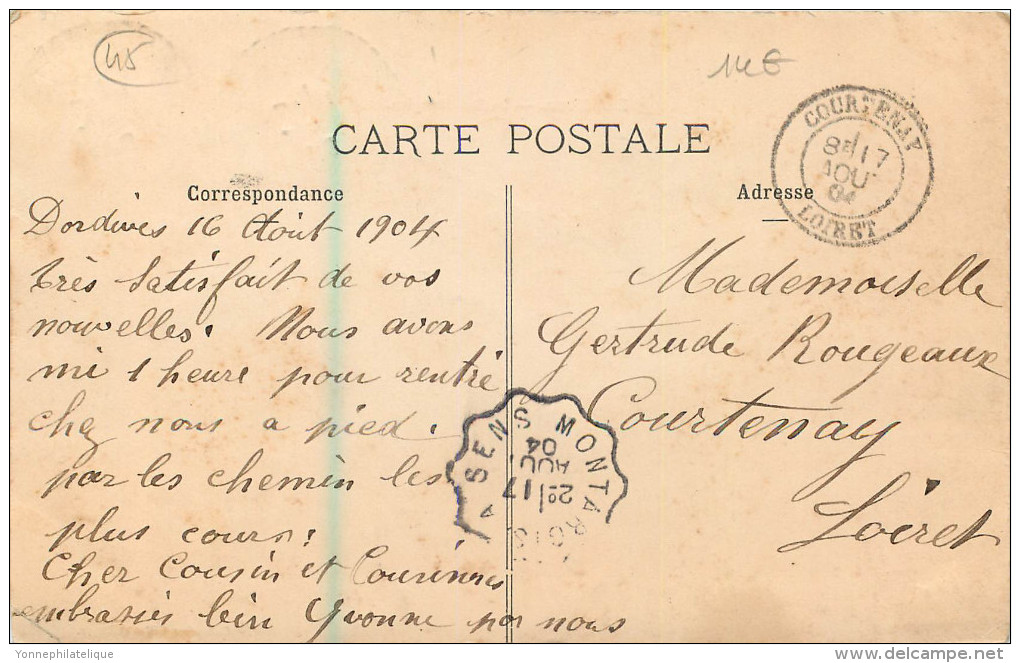 45
14€
COURTENAY
8E/17
AOUT
04
LOIRET
CARTE POSTALE
Correspondance
Adresse
Dordives 16 Août 1904
très satisfait de vos
nouvelles. Nous avons
mi 1 heure pour rentré
chez nous a pied.
par les chemin les
plus cours.
Cher Cousin et Cousinnes
embrasses bein Yvonne por nous
Mademoiselle
Gertrude Rougeaux
Courtenay
Loiret
SENS A MONTARGIS
2°/17
AOU
04
Yonnephilatelique
delcampe.net